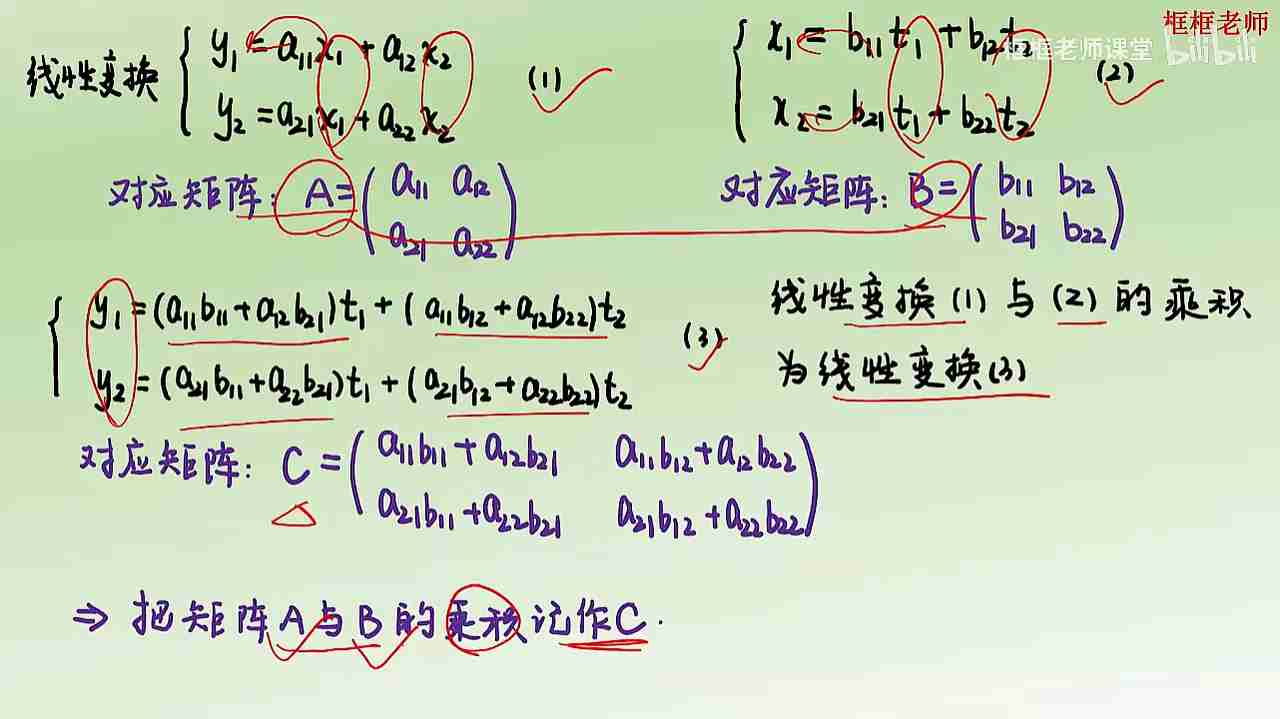 框框老师
框框老师课堂 bilibili
线性变换 { y₁ = a₁₁x₁ + a₁₂x₂
y₂ = a₂₁x₁ + a₂₂x₂ (1)
{ x₁ = b₁₁t₁ + b₁₂t₂
x₂ = b₂₁t₁ + b₂₂t₂ (2)
对应矩阵: A = ( a₁₁ a₁₂
a₂₁ a₂₂ )
对应矩阵: B = ( b₁₁ b₁₂
b₂₁ b₂₂ )
{ y₁ = (a₁₁b₁₁ + a₁₂b₂₁)t₁ + (a₁₁b₁₂ + a₁₂b₂₂)t₂
y₂ = (a₂₁b₁₁ + a₂₂b₂₁)t₁ + (a₂₁b₁₂ + a₂₂b₂₂)t₂ (3)
线性变换(1)与(2)的乘积
为线性变换(3)
对应矩阵: C = ( a₁₁b₁₁ + a₁₂b₂₁ a₁₁b₁₂ + a₁₂b₂₂
a₂₁b₁₁ + a₂₂b₂₁ a₂₁b₁₂ + a₂₂b₂₂ )
⇒ 把矩阵A与B的乘积记作C.